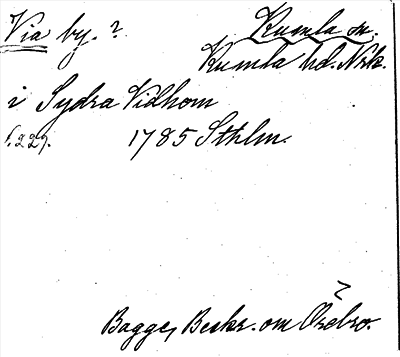 Via by.?
Kumla sn.
Kumla hd. Nrk.
i Sydra Vidhom
s. 229.
1785 Sthlm.
Bagge, Beskr. om Örebro.